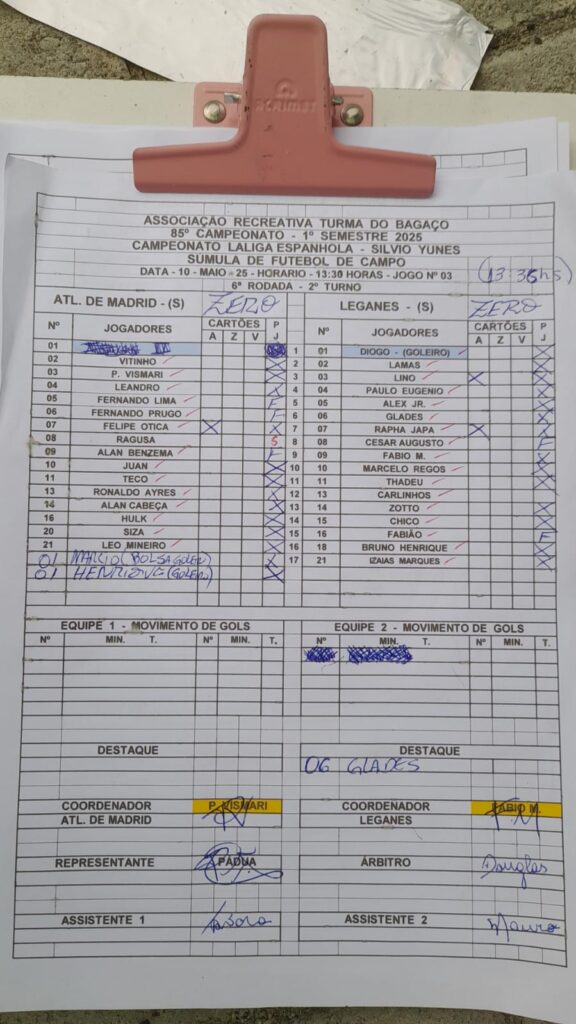 ACRIMET
ASSOCIAÇÃO RECREATIVA TURMA DO BAGAÇO
85º CAMPEONATO - 1º SEMESTRE 2025
CAMPEONATO LALIGA ESPANHOLA - SILVIO YUNES
SÚMULA DE FUTEBOL DE CAMPO
DATA - 10 - MAIO - 25 - HORARIO - 13:30 HORAS - JOGO Nº 03 (13:36hs)
6ª RODADA - 2º TURNO
ATL. DE MADRID - (S) ZERO LEGANES - (S) ZERO
Nº JOGADORES CARTÕES P J Nº JOGADORES CARTÕES P J
A Z V A Z V
01 1 01 DIOGO - (GOLEIRO) X
02 VITINHO X 2 02 LAMAS X
03 P. VISMARI X 3 03 LINO X X
04 LEANDRO X 4 04 PAULO EUGENIO X
05 FERNANDO LIMA F 5 05 ALEX JR. X
06 FERNANDO PRUGO F 6 06 GLADES X
07 FELIPE OTICA X X 7 07 RAPHA JAPA X X
08 RAGUSA S 8 08 CESAR AUGUSTO F
09 ALAN BENZEMA F 9 09 FABIO M. X
10 JUAN X 10 10 MARCELO REGOS X
11 TECO X 11 11 THADEU X
13 RONALDO AYRES X 12 13 CARLINHOS
14 ALAN CABEÇA X 13 14 ZOTTO X
16 HULK X 14 15 CHICO X
20 SIZA X 15 16 FABIÃO F
21 LEO MINEIRO X 16 18 BRUNO HENRIQUE X
01 MARCIO (BOLSA GOLEIRO) X 17 21 IZAIAS MARQUES X
01 HENRIQUE (GOLEIRO) X
EQUIPE 1 - MOVIMENTO DE GOLS EQUIPE 2 - MOVIMENTO DE GOLS
Nº MIN. T. Nº MIN. T. Nº MIN. T. Nº MIN. T.
DESTAQUE DESTAQUE
06 GLADES
COORDENADOR P. VISMARI COORDENADOR FABIO M.
ATL. DE MADRID LEGANES F.M
REPRESENTANTE PÁDUA ÁRBITRO Douglas
ASSISTENTE 1 ASSISTENTE 2 Mauro